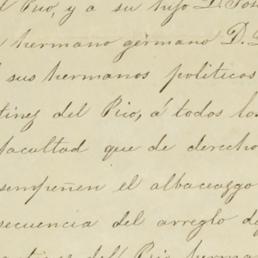 Pico, y a su hijo D. José
hermano germano D.
sus hermanos politicos
tinez del Pico, á todos los
facultad que de derecho
sempeñen el albaceazgo
secuencia del arreglo de
del Pico, herma